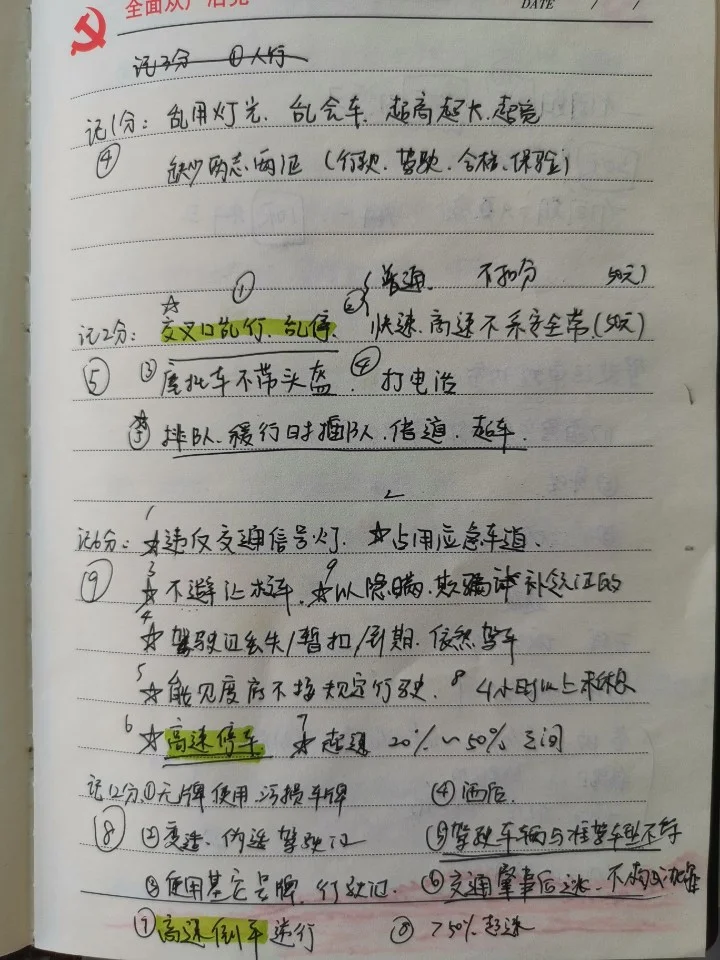 全面从严治党
DATE / /
记3分 ①人行
记1分: 乱用灯光、乱会车、超高超大、超宽
④ 缺少两志、两证 (行驶、驾驶、合格、保险)
① ② { 普通 不扣分 50元)
记2分: ☆交叉口乱行、乱停、 快速、高速不系安全带(50元)
⑤ ③ 摩托车不带头盔 ④ 打电话
☆⑤ 排队、缓行时插队、借道、超车.
记6分: 1☆违反交通信号灯. 2☆占用应急车道、
⑨ 3☆不避让校车. 9☆以隐瞒、欺骗 补领证的
4☆驾驶证丢失/暂扣/到期、依然驾车
5☆能见度 不按规定行驶. 8 4小时以上未休息
6☆高速停车 7☆超速 20%~50%之间
记12分 ①无牌使用、污损车牌 ④酒后.
⑧ ②变造、伪造驾驶证 ⑤驾驶车辆与准驾车型不符
③使用其它号牌、行驶证. ⑥交通肇事后逃、不构成犯罪
⑦高速倒车逆行 ⑧ >50%超速